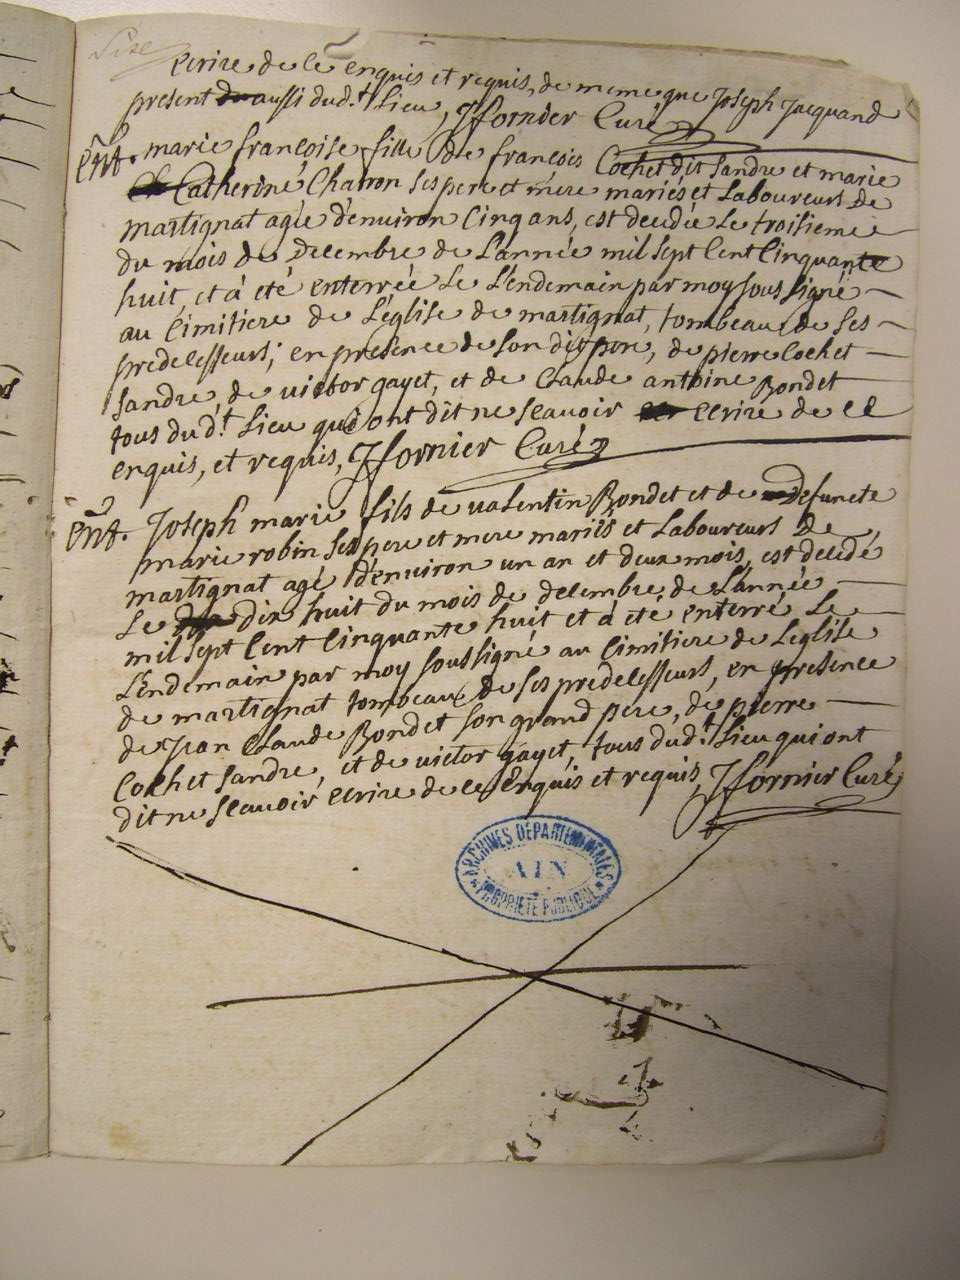 Size
ecrire de ce enquis et requis, de meme que Joseph Jacquand
present aussi dud.t Lieu, Jfornier Curé
Ent. marie françoise fille de françois Cochet dit Sandre et marie
Catherine Charron ses pere et mere mariés et Laboureurs de
martignat agée d'environ Cinq ans, est decedée Le troisieme
du mois de Decembre de L'année mil sept Cent Cinquante
huit, et à eté enterrée Le Lendemain par moy sous signé
au Cimitiere de L'église de martignat, tombeau de ses
predecesseurs; en presence de son dit pere, de pierre Cochet
Sandre, de victor gayet, et de Claude antoine Bondet
tous dud.t Lieu qui ont dit ne scavoir ecrire de ce
enquis, et requis, Jfornier Curé
Ent. Joseph marie fils de valentin Bondet et de defuncte
marie robin ses pere et mere mariés et Laboureurs de
martignat agé d'environ un an et deux mois, est decedé
Le dix huit du mois de decembre de L'année
mil sept Cent Cinquante huit et à eté enterré Le
Lendemain par moy soussigné au Cimitiere de L'eglise
de martignat tombeau de ses predecesseurs, en presence
de Jean Claude Bondet son grand pere, de pierre
Cochet Sandre, et de victor gayet, tous dud.t Lieu qui ont
dit ne scavoir ecrire de ce Enquis et requis, Jfornier Curé
ARCHIVES DEPARTEMENTALES
AIN
PROPRIETE PUBLIQUE